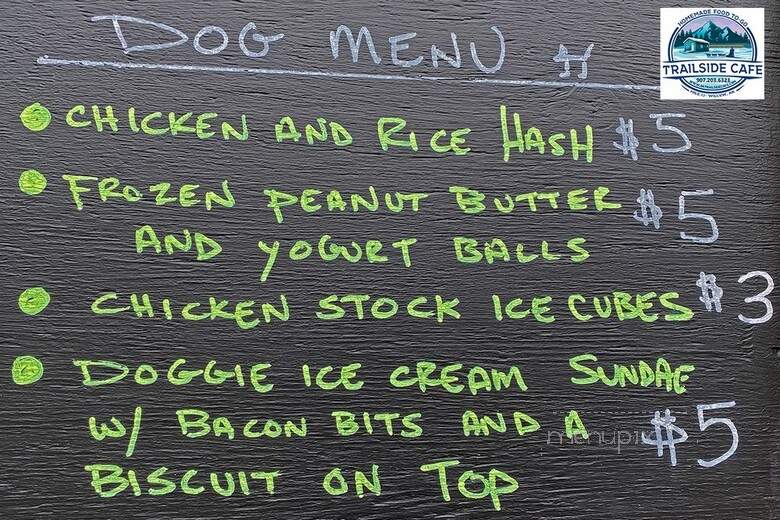 DOG MENU
HOMEMADE FOOD TO GO
TRAILSIDE CAFE
907.203.6323
• CHICKEN AND RICE HASH $5
• FROZEN PEANUT BUTTER $5
AND YOGURT BALLS
• CHICKEN STOCK ICE CUBES $3
• DOGGIE ICE CREAM SUNDAE
W/ BACON BITS AND A $5
BISCUIT ON TOP